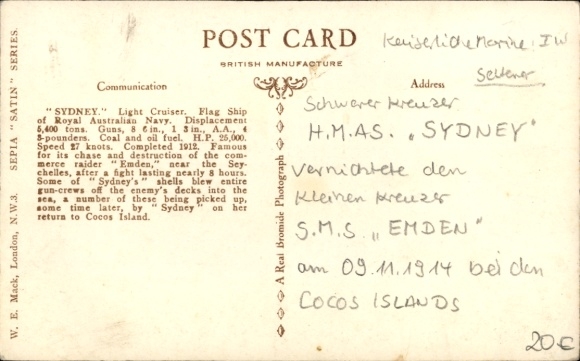 POST CARD
BRITISH MANUFACTURE
Kaiserliche Marine, I W
Seltener
Communication
Address
"SYDNEY." Light Cruiser. Flag Ship
of Royal Australian Navy. Displacement
5,400 tons. Guns, 8 6 in., 1 3 in., A.A., 4
3-pounders. Coal and oil fuel. H.P. 25,000.
Speed 27 knots. Completed 1912. Famous
for its chase and destruction of the com-
merce raider "Emden," near the Sey-
chelles, after a fight lasting nearly 8 hours.
Some of "Sydney's" shells blew entire
gun-crews off the enemy's decks into the
sea, a number of these being picked up,
some time later, by "Sydney" on her
return to Cocos Island.
Schwerer Kreuzer
H.M.A.S. „SYDNEY"
vernichtete den
kleinen Kreuzer
S.M.S. „EMDEN"
am 09.11.1914 bei den
COCOS ISLANDS
20€
W. E. Mack, London, N.W.3. SEPIA "SATIN" SERIES.
A Real Bromide Photograph